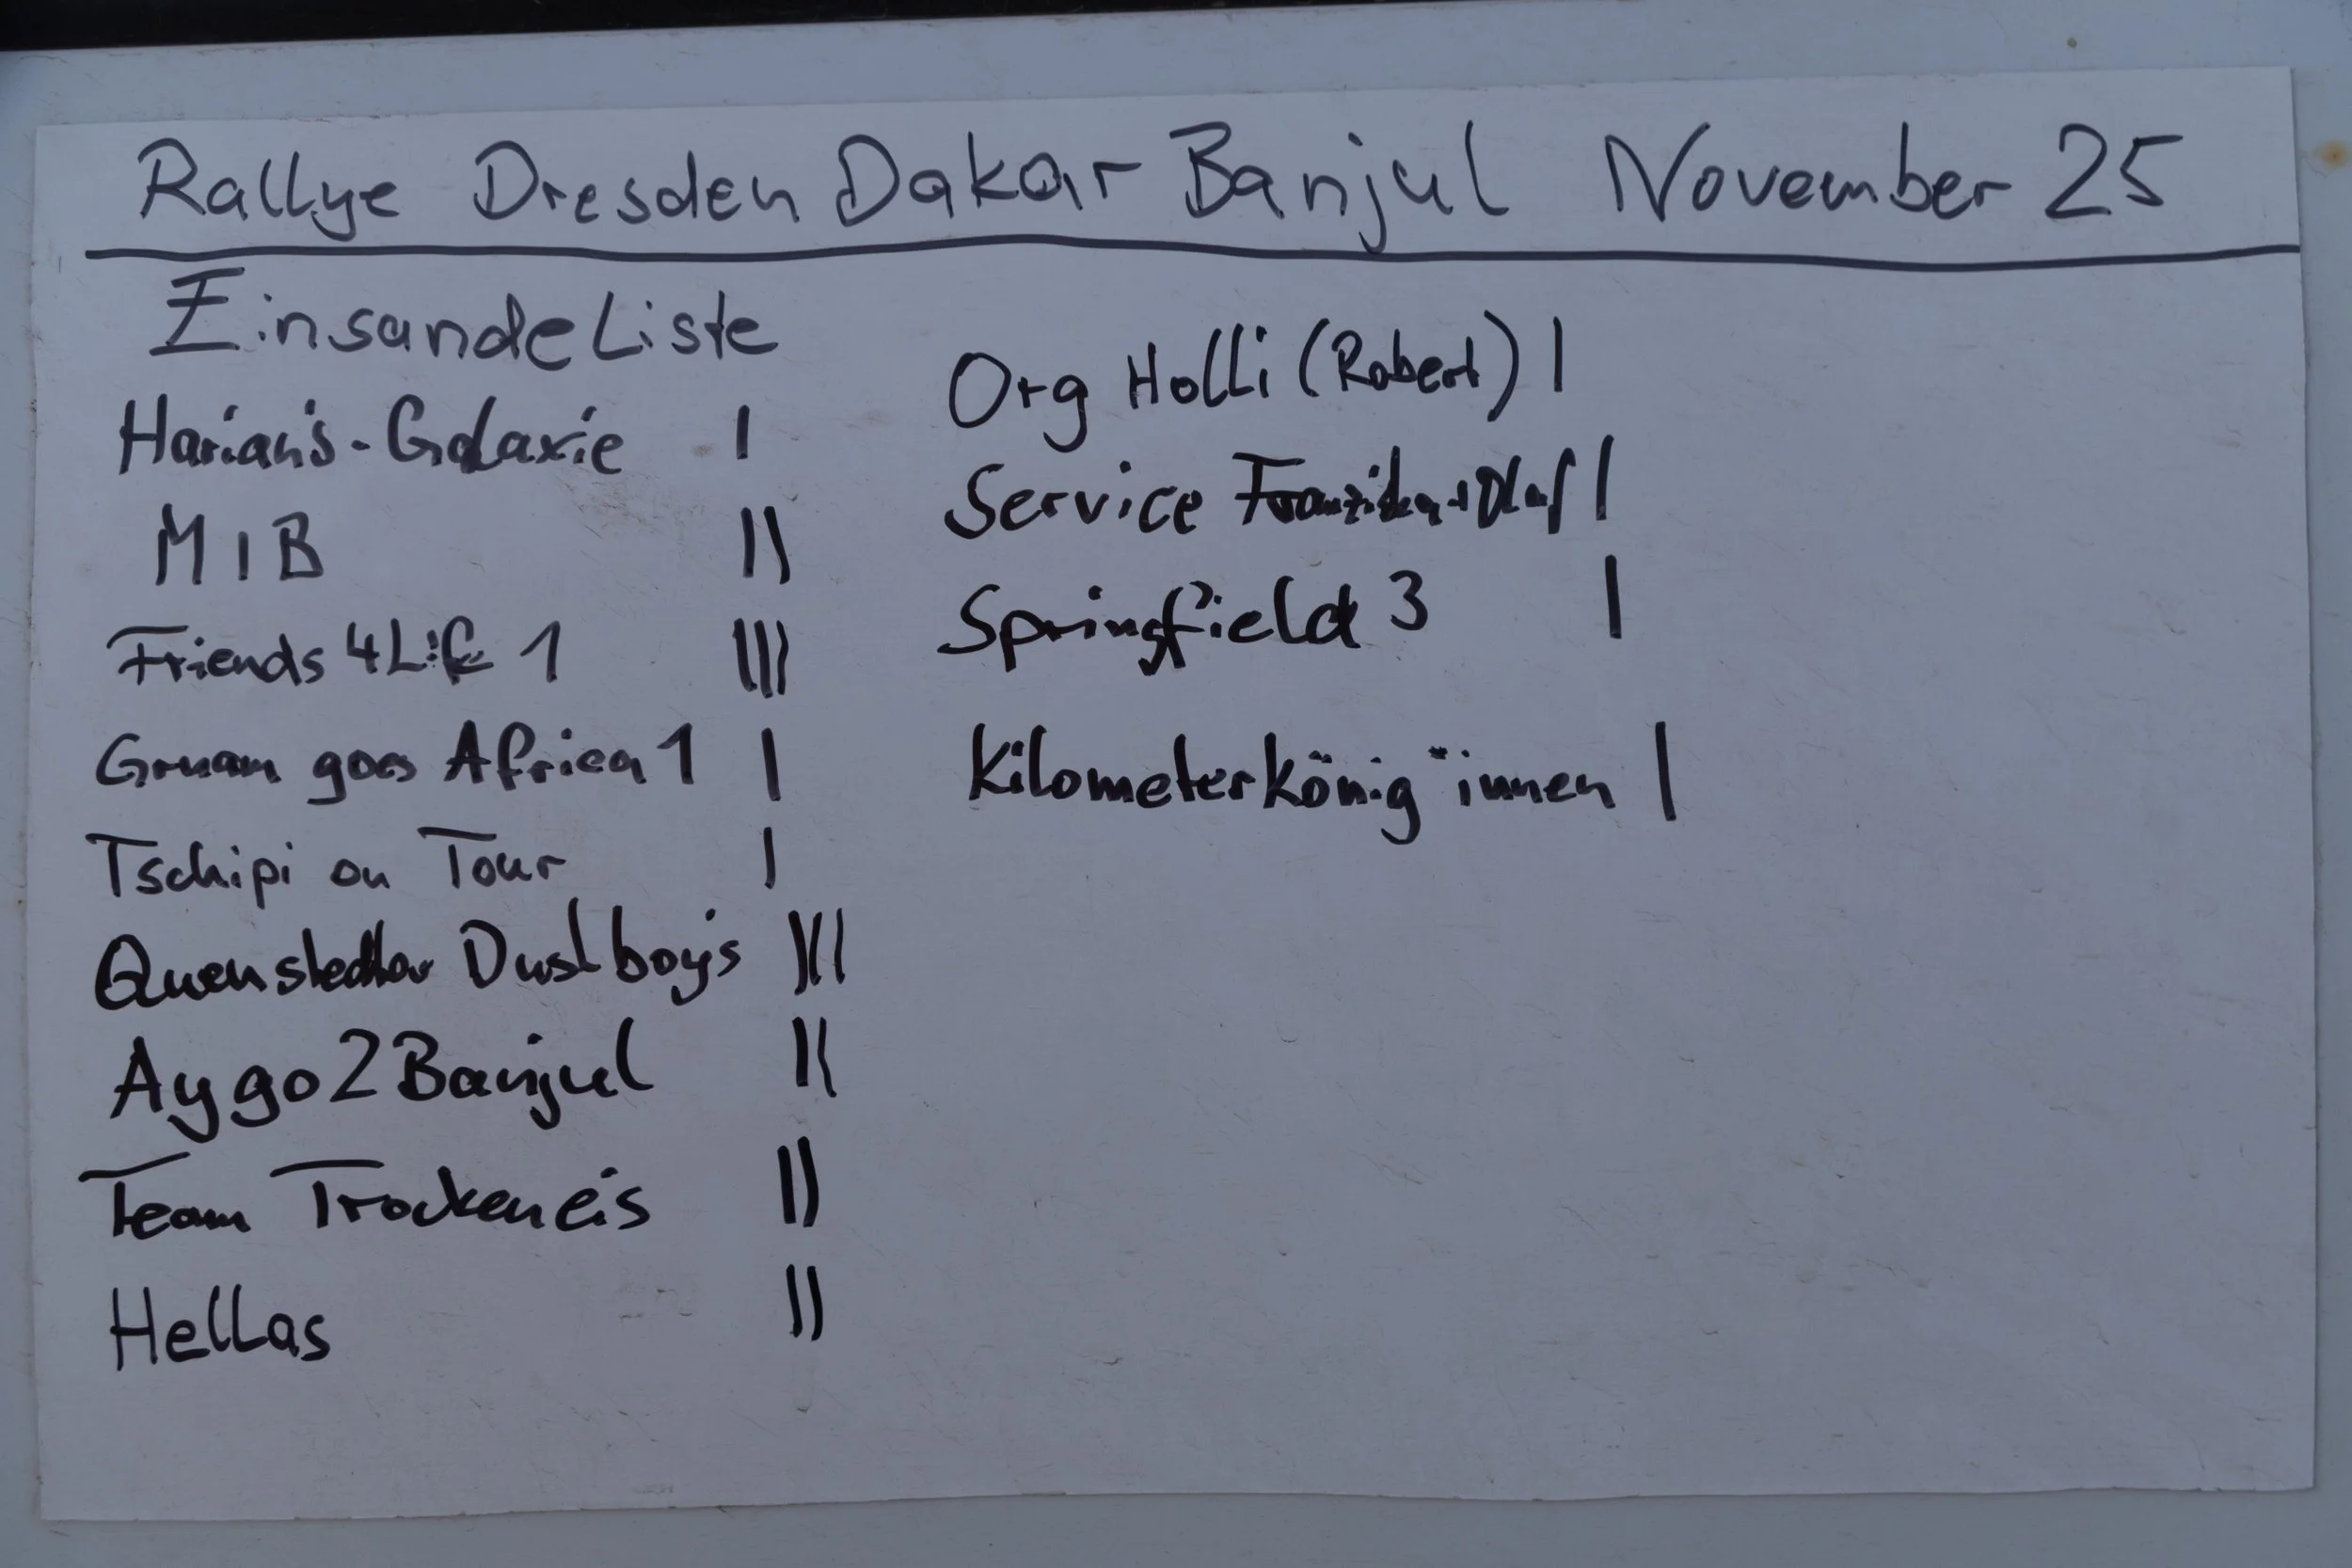 Rallye Dresden Dakar Banjul November 25
Einsande Liste
Harian's-Galaxie I
MIB II
Friends 4Life 1 III
Gruam goes Africa 1 I
Tschipi on Tour I
Quenstedter Dustboys III
Aygo2Banjul II
Team Trockeneis II
Hellas II
Org Holli (Robert) I
Service Franziska + Olaf I
Springfield 3 I
Kilometerkönig*innen I